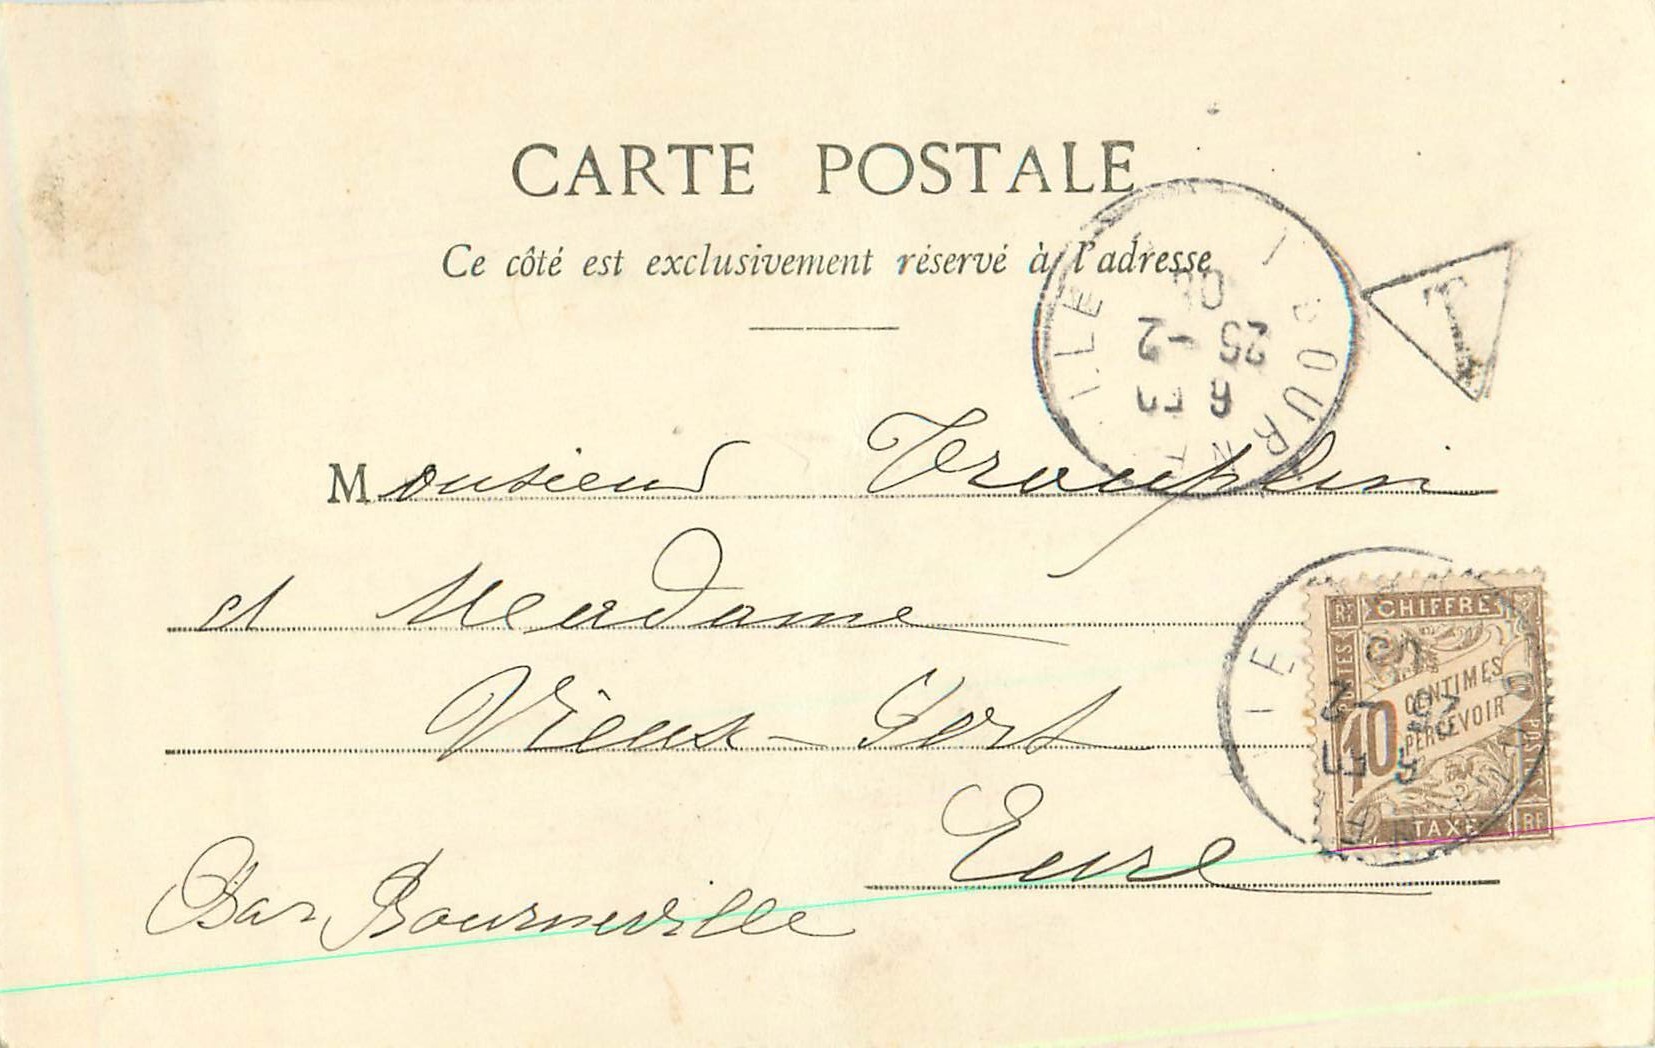 CARTE POSTALE
Ce côté est exclusivement réservé à l'adresse
T
Monsieur Trouplin
et Madame
Vieux-Port
Eure
Par Bourneville
25 -2
RF CHIFFRE
POSTES
10 CENTIMES
PERCEVOIR
TAXE RF